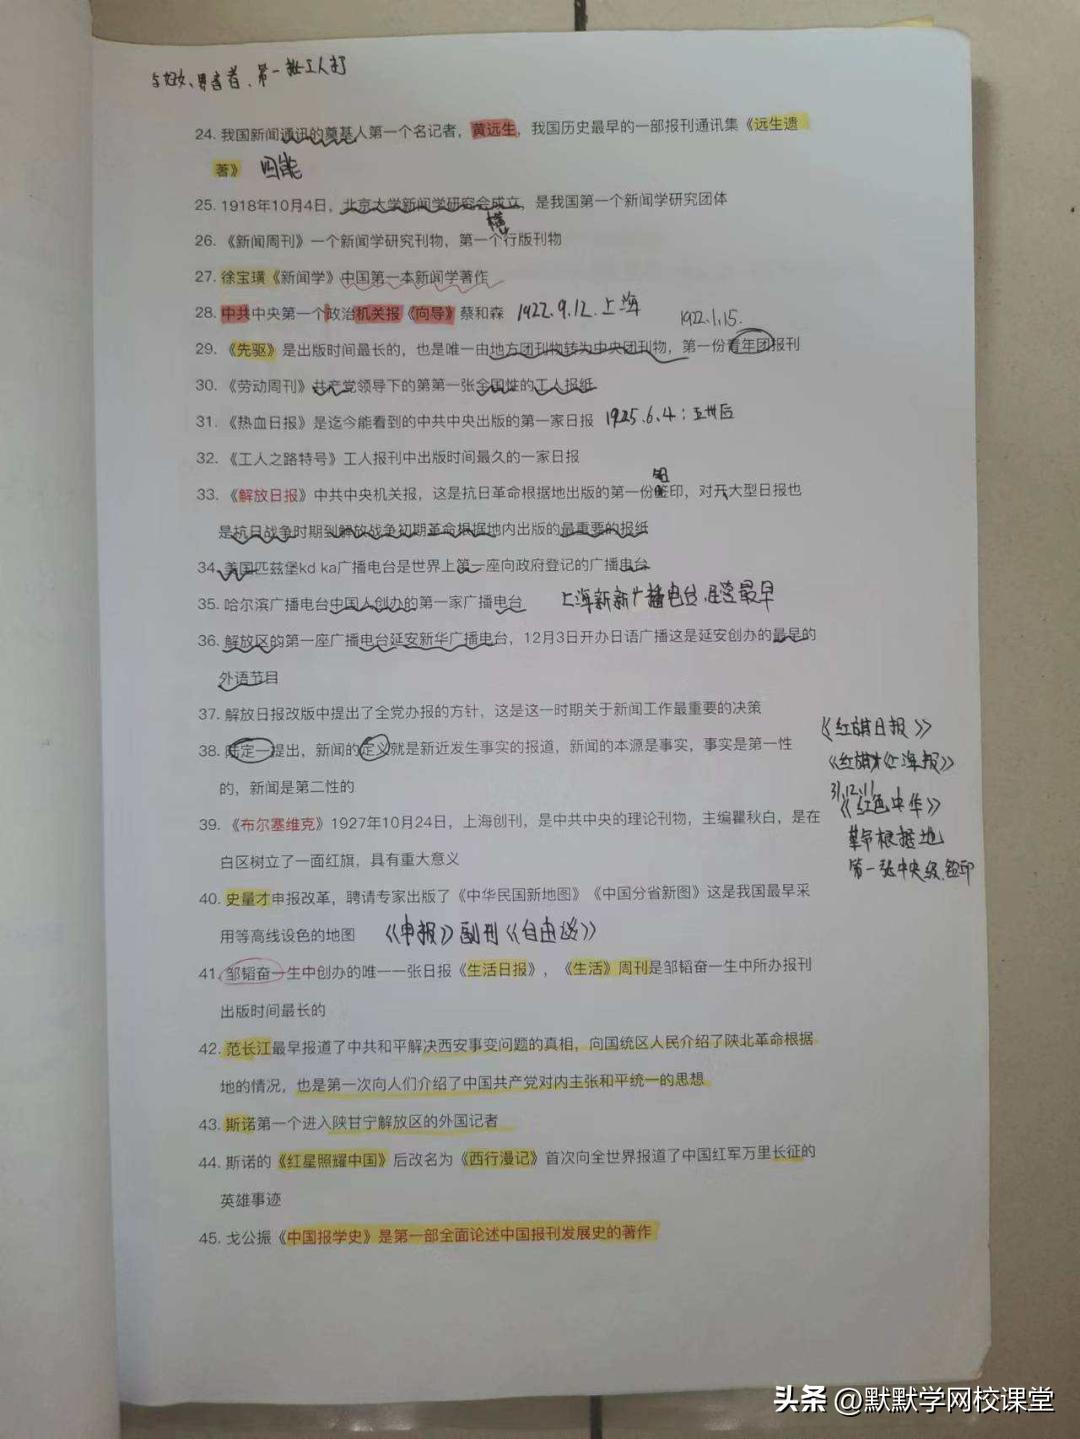 第一批工人打
24. 我国新闻通讯的奠基人第一个名记者，黄远生，我国历史最早的一部报刊通讯集《远生遗
著》 四能
25. 1918年10月4日，北京大学新闻学研究会成立，是我国第一个新闻学研究团体
横
26. 《新闻周刊》一个新闻学研究刊物，第一个行版刊物
27. 徐宝璜《新闻学》中国第一本新闻学著作
28. 中共中央第一个政治机关报《向导》蔡和森 1922.9.12.上海
1922.1.15.
29. 《先驱》是出版时间最长的，也是唯一由地方团刊物转为中央团刊物，第一份青年团报刊
30. 《劳动周刊》共产党领导下的第第一张全国性的工人报纸
31. 《热血日报》是迄今能看到的中共中央出版的第一家日报 1925.6.4：五卅后
32. 《工人之路特号》工人报刊中出版时间最久的一家日报
铅
33. 《解放日报》中共中央机关报，这是抗日革命根据地出版的第一份签印，对开大型日报也
是抗日战争时期到解放战争初期革命根据地内出版的最重要的报纸
34. 美国匹兹堡kd ka广播电台是世界上第一座向政府登记的广播电台
35. 哈尔滨广播电台中国人创办的第一家广播电台 上海新新广播电台,民营最早
36. 解放区的第一座广播电台延安新华广播电台，12月3日开办日语广播这是延安创办的最早的
外语节目
37. 解放日报改版中提出了全党办报的方针，这是这一时期关于新闻工作最重要的决策
38. 陆定一提出，新闻的定义就是新近发生事实的报道，新闻的本源是事实，事实是第一性
的，新闻是第二性的
《红旗日报》
《上海报》
31.12.11
《红色中华》
革命根据地
第一张中央级,铅印
39. 《布尔塞维克》1927年10月24日，上海创刊，是中共中央的理论刊物，主编瞿秋白，是在
白区树立了一面红旗，具有重大意义
40. 史量才申报改革，聘请专家出版了《中华民国新地图》《中国分省新图》这是我国最早采
用等高线设色的地图 《申报》副刊《自由谈》
41. 邹韬奋一生中创办的唯一一张日报《生活日报》，《生活》周刊是邹韬奋一生中所办报刊
出版时间最长的
42. 范长江最早报道了中共和平解决西安事变问题的真相，向国统区人民介绍了陕北革命根据
地的情况，也是第一次向人们介绍了中国共产党对内主张和平统一的思想
43. 斯诺第一个进入陕甘宁解放区的外国记者
44. 斯诺的《红星照耀中国》后改名为《西行漫记》首次向全世界报道了中国红军万里长征的
英雄事迹
45. 戈公振《中国报学史》是第一部全面论述中国报刊发展史的著作
头条 @默默学网校课堂